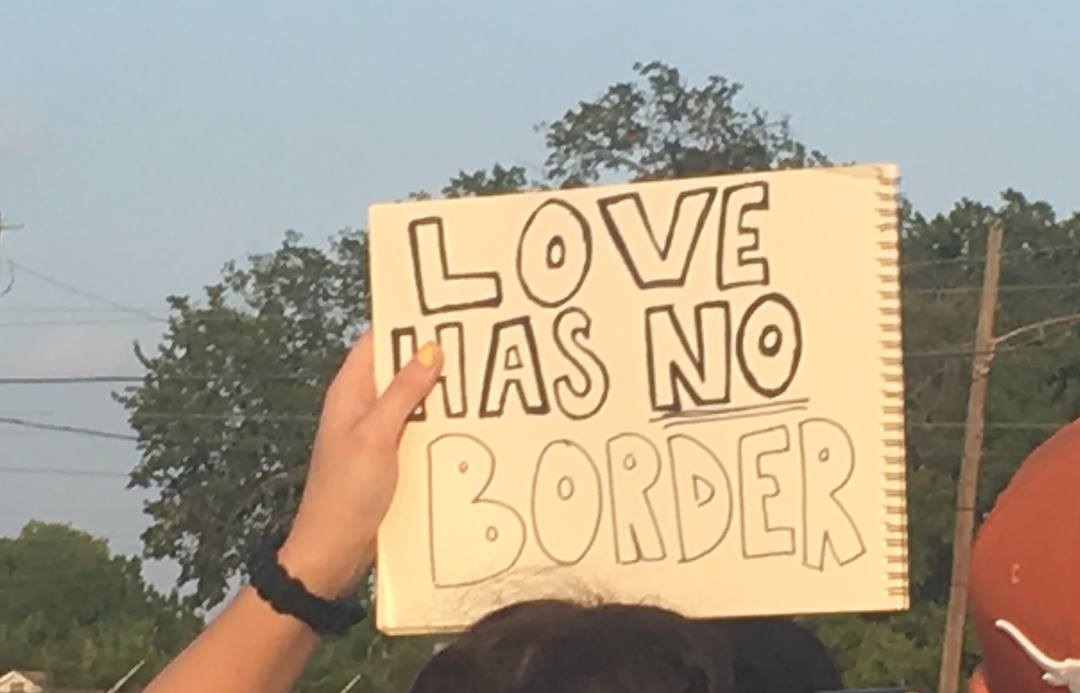 LOVE
HAS NO
BORDER